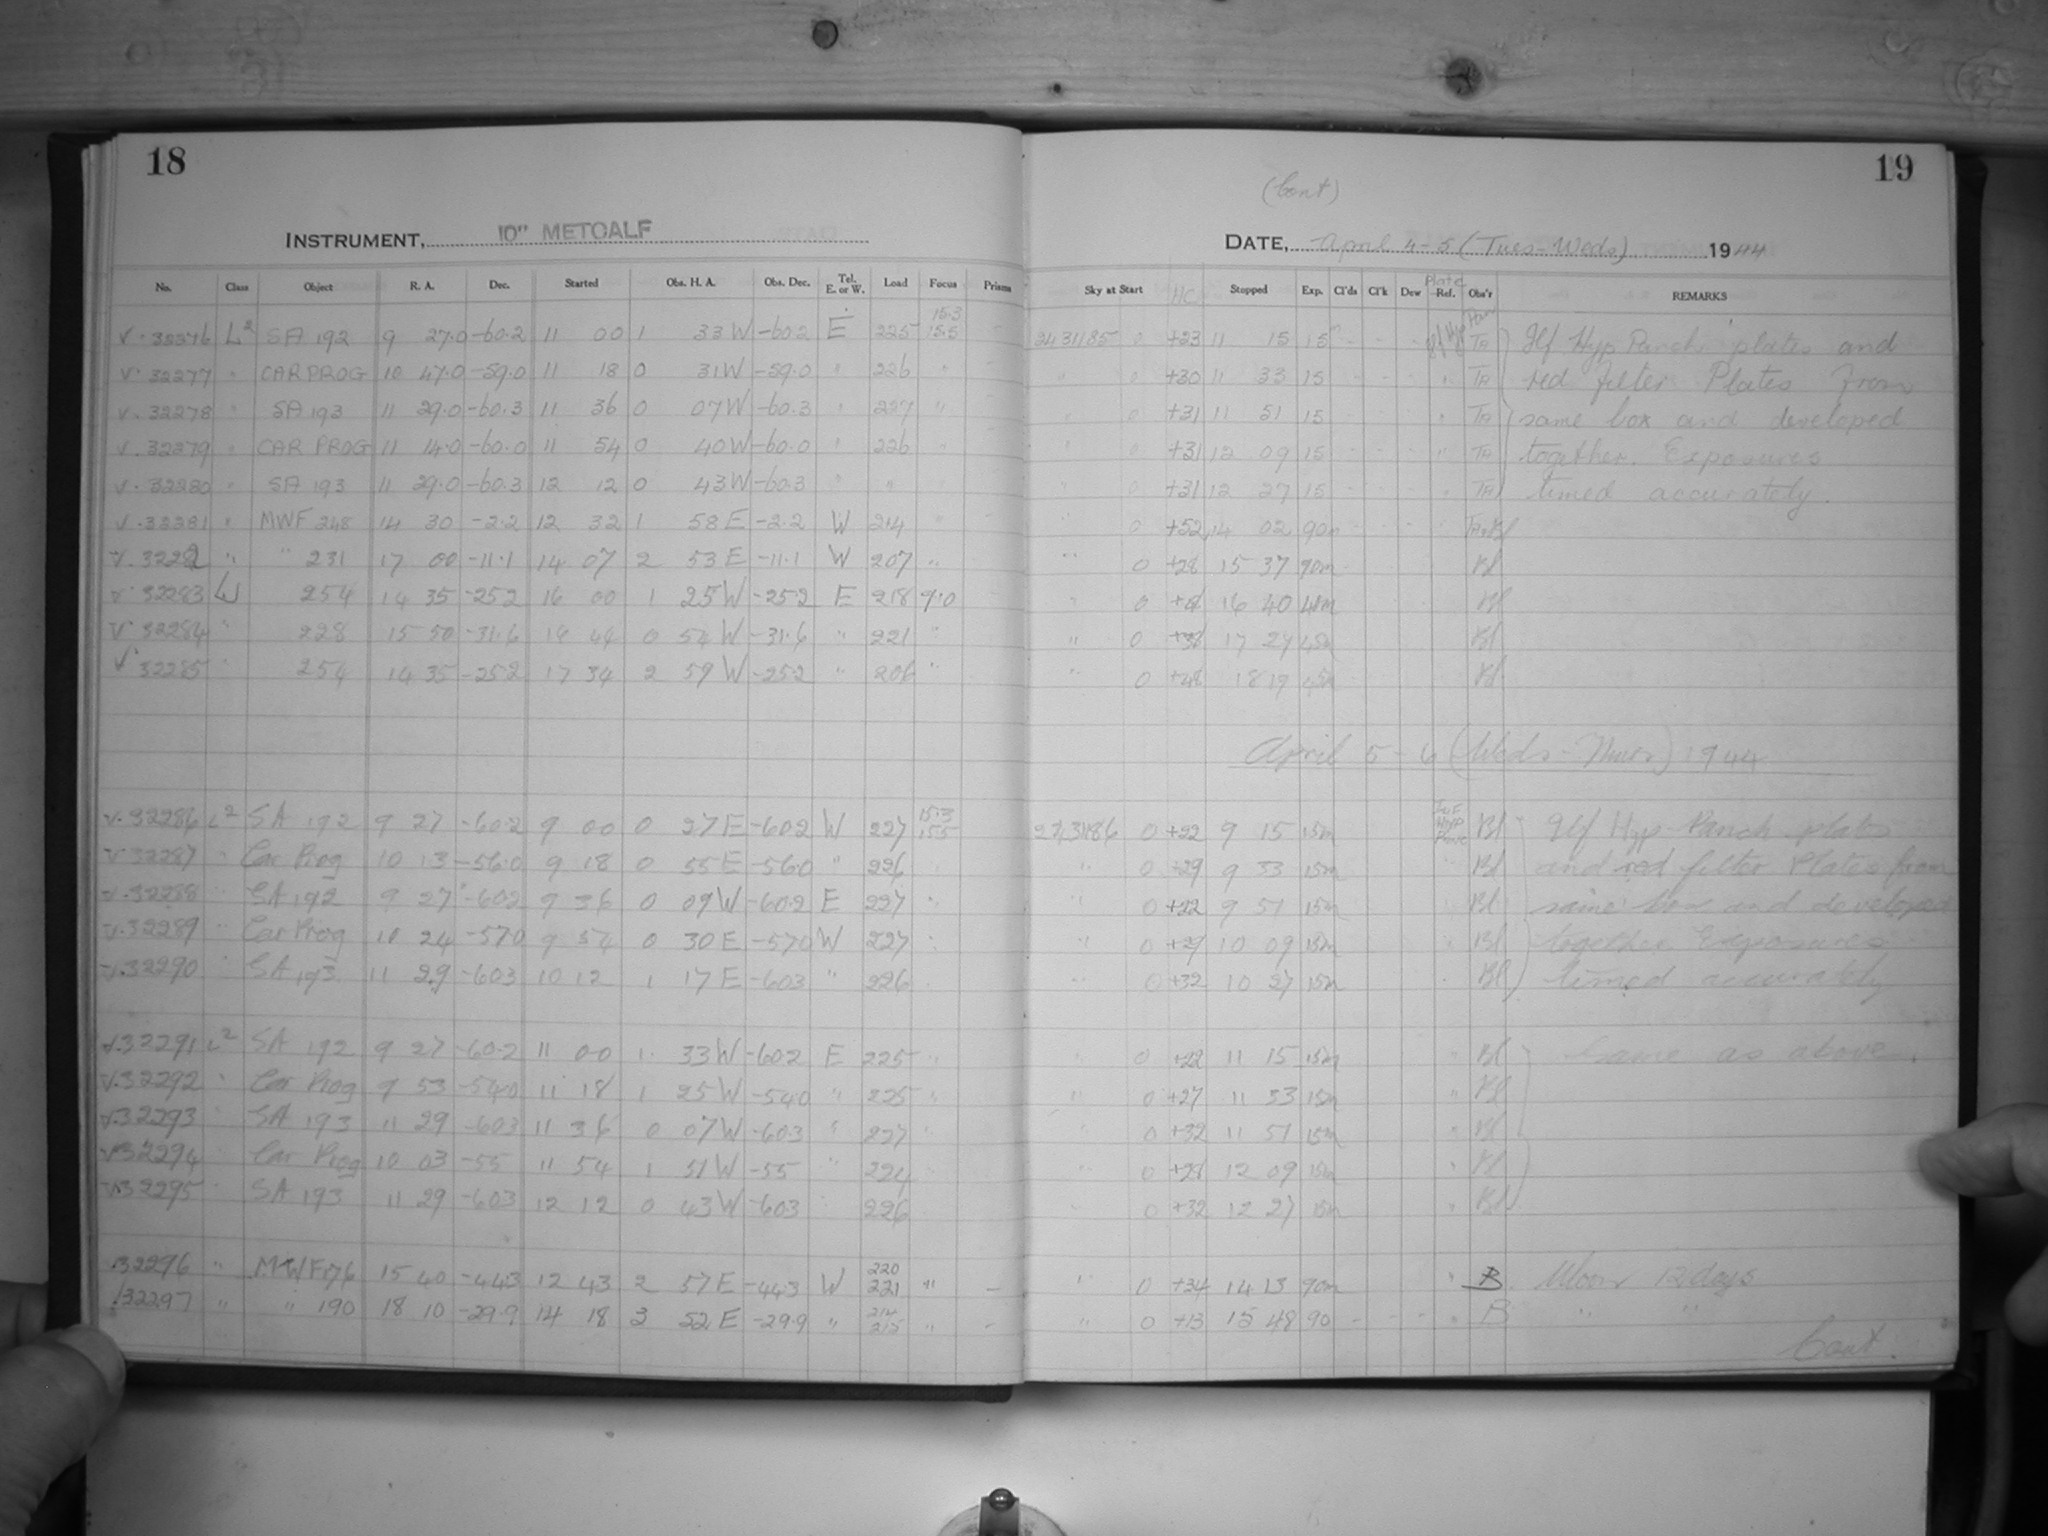 18
INSTRUMENT, 10" METCALF
No. Class Object R. A. Dec. Started Obs. H. A. Obs. Dec. Tel. E. or W. Load Focus Prisms
V. 32276 L2 SA 192 9 27.0 -60.2 11 00 1 33 W -60.2 E 225 15.3 15.5
V. 32277 " CAR PROG 10 47.0 -59.0 11 18 0 31 W -59.0 " 226 "
V. 32278 " SA 193 11 29.0 -60.3 11 36 0 07 W -60.3 " 227 "
V. 32279 " CAR PROG 11 14.0 -60.0 11 54 0 40 W -60.0 " 226
V. 32280 " SA 193 11 29.0 -60.3 12 12 0 43 W -60.3 " "
V. 32281 " MWF 248 14 30 -2.2 12 32 1 58 E -2.2 W 214 "
V. 32282 " " 231 17 00 -11.1 14 07 2 53 E -11.1 W 207 "
V 32283 254 14 35 -25.2 16 00 1 25 W -25.2 E 218 9.0
V 32284 " 228 15 50 -31.6 16 44 0 54 W -31.6 " 221 "
V 32285 " 254 14 35 -25.2 17 34 2 59 W -25.2 " 206 "
V. 32286 L2 SA 192 9 27 -60.2 9 00 0 27 E -60.2 W 227 15.3 15.5
V 32287 " Car Prog 10 13 -56.0 9 18 0 55 E -56.0 " 226
V. 32288 " SA 192 9 27 -60.2 9 36 0 09 W -60.2 E 227 "
V. 32289 " Car Prog 10 24 -57.0 9 54 0 30 E -57.0 W 227 "
V. 32290 " SA 193 11 29 -60.3 10 12 1 17 E -60.3 " 226
V. 32291 L2 SA 192 9 27 -60.2 11 00 1 33 W -60.2 E 225 "
V. 32292 " Car Prog 9 53 -54.0 11 18 1 25 W -54.0 " 225 "
V. 32293 " SA 193 11 29 -60.3 11 36 0 07 W -60.3 " 227
V 32294 " Car Prog 10 03 -55 11 54 1 51 W -55 " 224
V. 32295 " SA 193 11 29 -60.3 12 12 0 43 W -60.3 226
32296 " MWF 176 15 40 -44.3 12 43 2 57 E -44.3 W 220 221 " -
32297 " " 190 18 10 -29.9 14 18 3 52 E -29.9 " 214 215 " -
19
(Cont)
DATE, April 4-5 (Tues-Weds) 1944
Sky at Start HC Stopped Exp. Cl'ds Cl'k Dew Plate Ref. Obs'r REMARKS
2431185 0 +23 11 15 15 - - - Ilf Hyp Pan TA Ilf Hyp Panch plates and
0 +30 11 33 15 - - - " TA red filter Plates from
" 0 +31 11 51 15 - - - " TA same box and developed
" 0 +31 12 09 15 - - - " TA together. Exposures
" 0 +31 12 27 15 - - - " TA timed accurately.
" 0 +52 14 02 90m
" 0 +28 15 37 90m Bl
" 0 16 40 40m Bl
" 0 +38 17 29 45m Bl
" 0 +48 18 19 45m Bl
April 5-6 (Weds-Thurs) 1944
2431186 0 +22 9 15 15m Ilf Hyp Panc Bl Ilf Hyp-Panch plates
" 0 +29 9 33 15m Bl and red filter Plates from
" 0 +22 9 51 15m Bl same box and developed
" 0 +27 10 09 15m " Bl together Exposures
" 0 +32 10 27 15m " Bl timed accurately
" 0 +22 11 15 15m " Bl Same as above.
" 0 +27 11 33 15m " Bl
" 0 +32 11 51 15m " Bl
" 0 12 09 15m " Bl
" 0 +32 12 27 15m " Bl
" 0 +34 14 13 90m " B. Moon 12 days
" 0 +13 15 48 90 - - - " B " "
Cont.